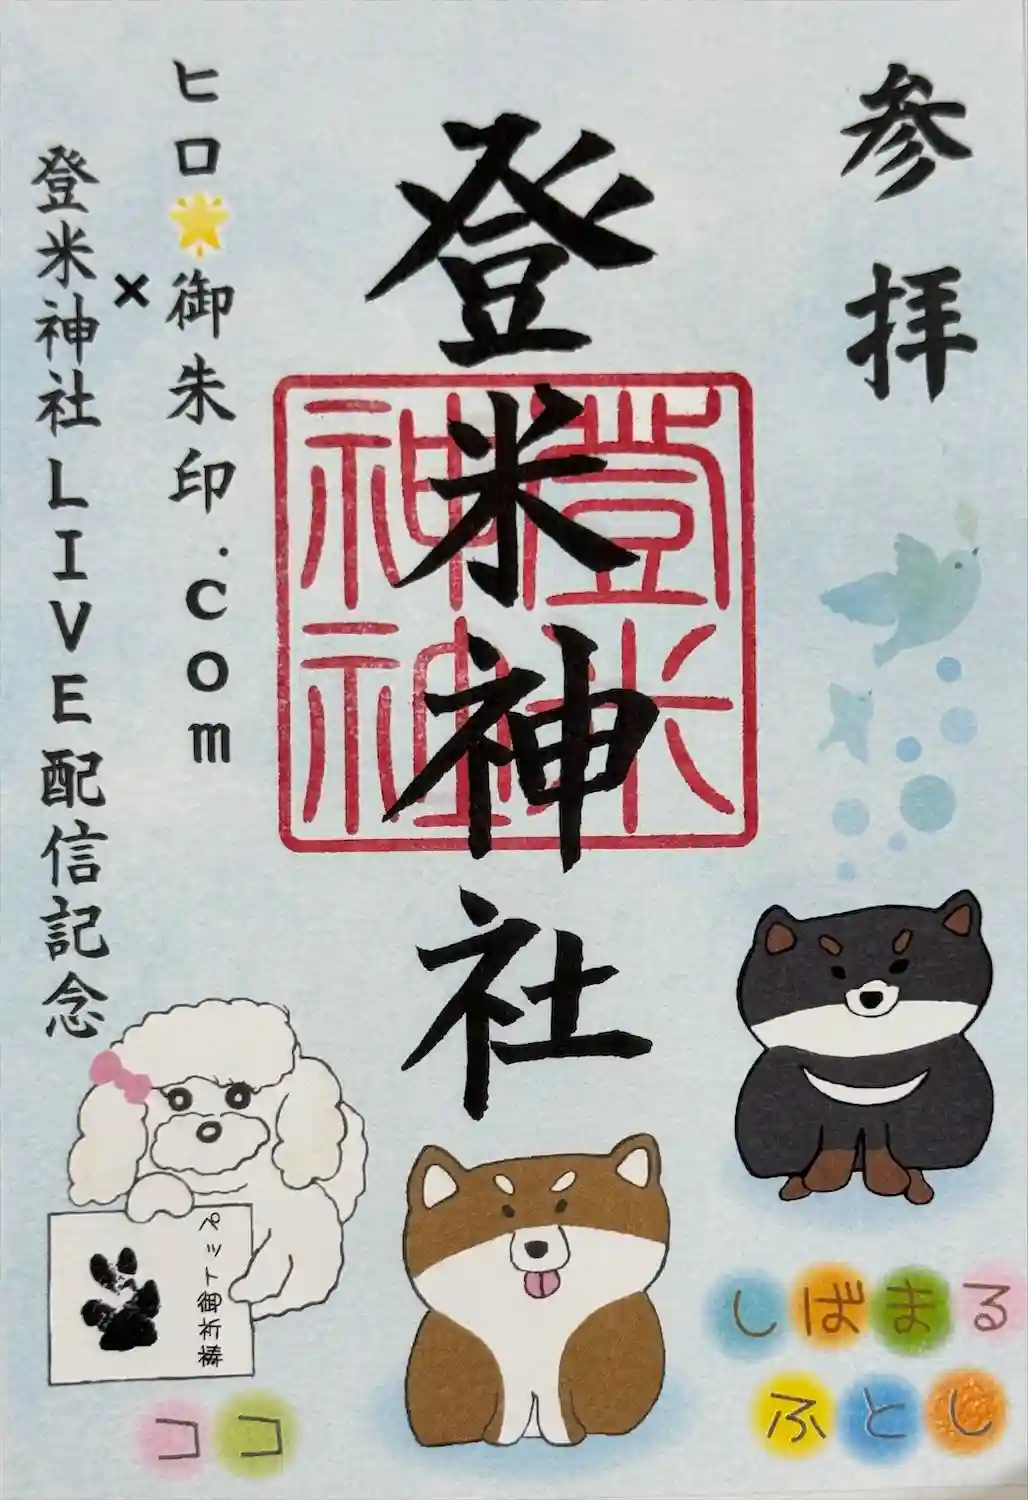 参拝
登米神社
登米
神社
ヒロ🌟御朱印.com
×
登米神社LIVE配信記念
ペット御祈祷
ココ
しばまる
ふとし